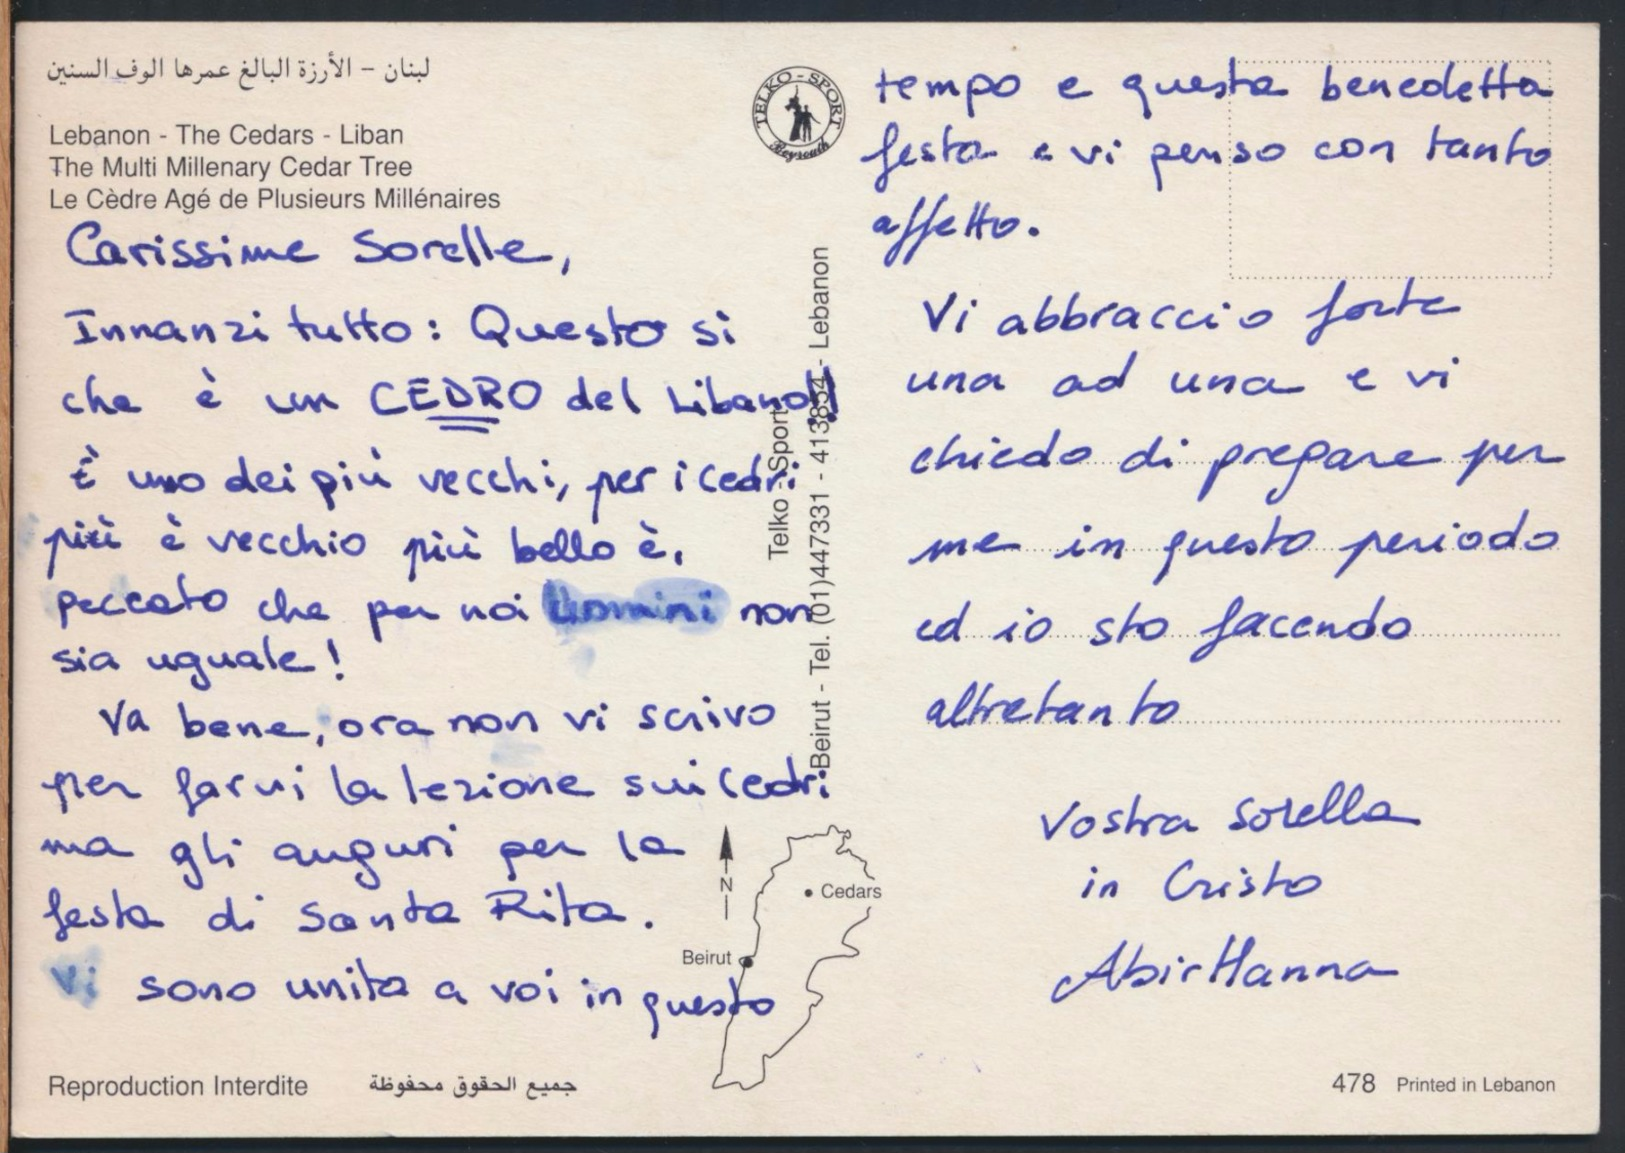 لبنان - الأرزة البالغ عمرها الوف السنين
Lebanon - The Cedars - Liban
The Multi Millenary Cedar Tree
Le Cèdre Agé de Plusieurs Millénaires
Carissime Sorelle,
Innanzi tutto: Questo si
che è un CEDRO del Libano!!
È uno dei più vecchi, per i cedri
più è vecchio più bello è,
peccato che per noi uomini non
sia uguale!
Va bene, ora non vi scrivo
per farvi la lezione sui cedri
ma gli auguri per la
festa di Santa Rita.
Vi sono unita a voi in questo
TELKO - SPORT
Beyrouth
Telko Sport
Beirut - Tel. (01)447331 - 413854 - Lebanon
tempo e questa benedetta
festa e vi penso con tanto
affetto.
Vi abbraccio forte
una ad una e vi
chiedo di pregare per
me in questo periodo
ed io sto facendo
altretanto
Vostra sorella
in Cristo
Abir Hanna
N
Cedars
Beirut
Reproduction Interdite
جميع الحقوق محفوظة
478 Printed in Lebanon